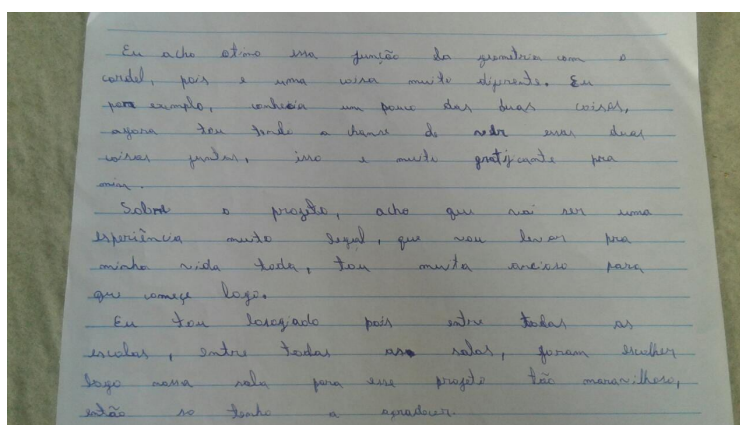 Eu acho otimo essa junção da geometria com o
cordel, pois e uma coisa muito diferente. Eu
por exemplo, conhecia um pouco das duas coisas,
agora tou tendo a chance de vedr essas duas
coisas juntas, isso e muito gratificante pra
mim.
Sobre o projeto, acho que vai ser uma
esperiência muito legal, que vou levar pra
minha vida toda, tou muito ancioso para
que começe logo.
Eu tou lisogiado pois entre todas as
escolas, entre todas as salas, foram escolher
logo nossa sala para esse projeto tão maravilhoso,
então so tenho a agradecer.